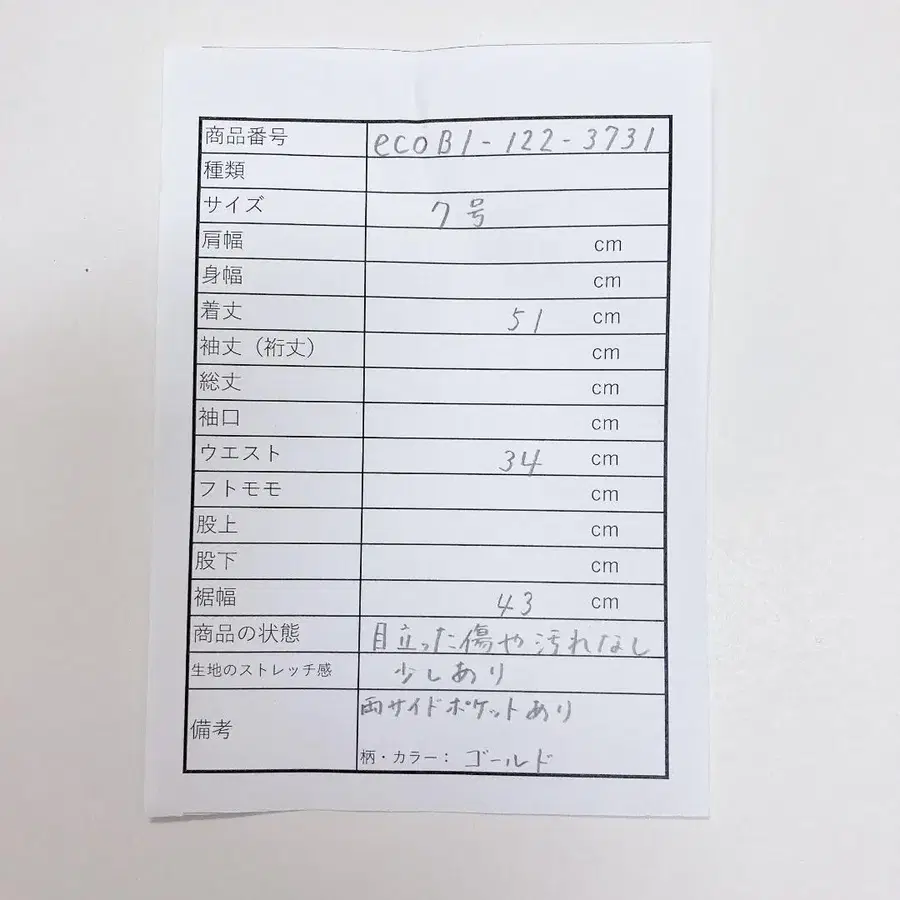 商品番号 ecoB1-122-3731
種類
サイズ 7号
肩幅 cm
身幅 cm
着丈 51 cm
袖丈（裄丈） cm
総丈 cm
袖口 cm
ウエスト 34 cm
フトモモ cm
股上 cm
股下 cm
裾幅 43 cm
商品の状態 目立った傷や汚れなし
生地のストレッチ感 少しあり
備考 両サイドポケットあり
柄・カラー： ゴールド